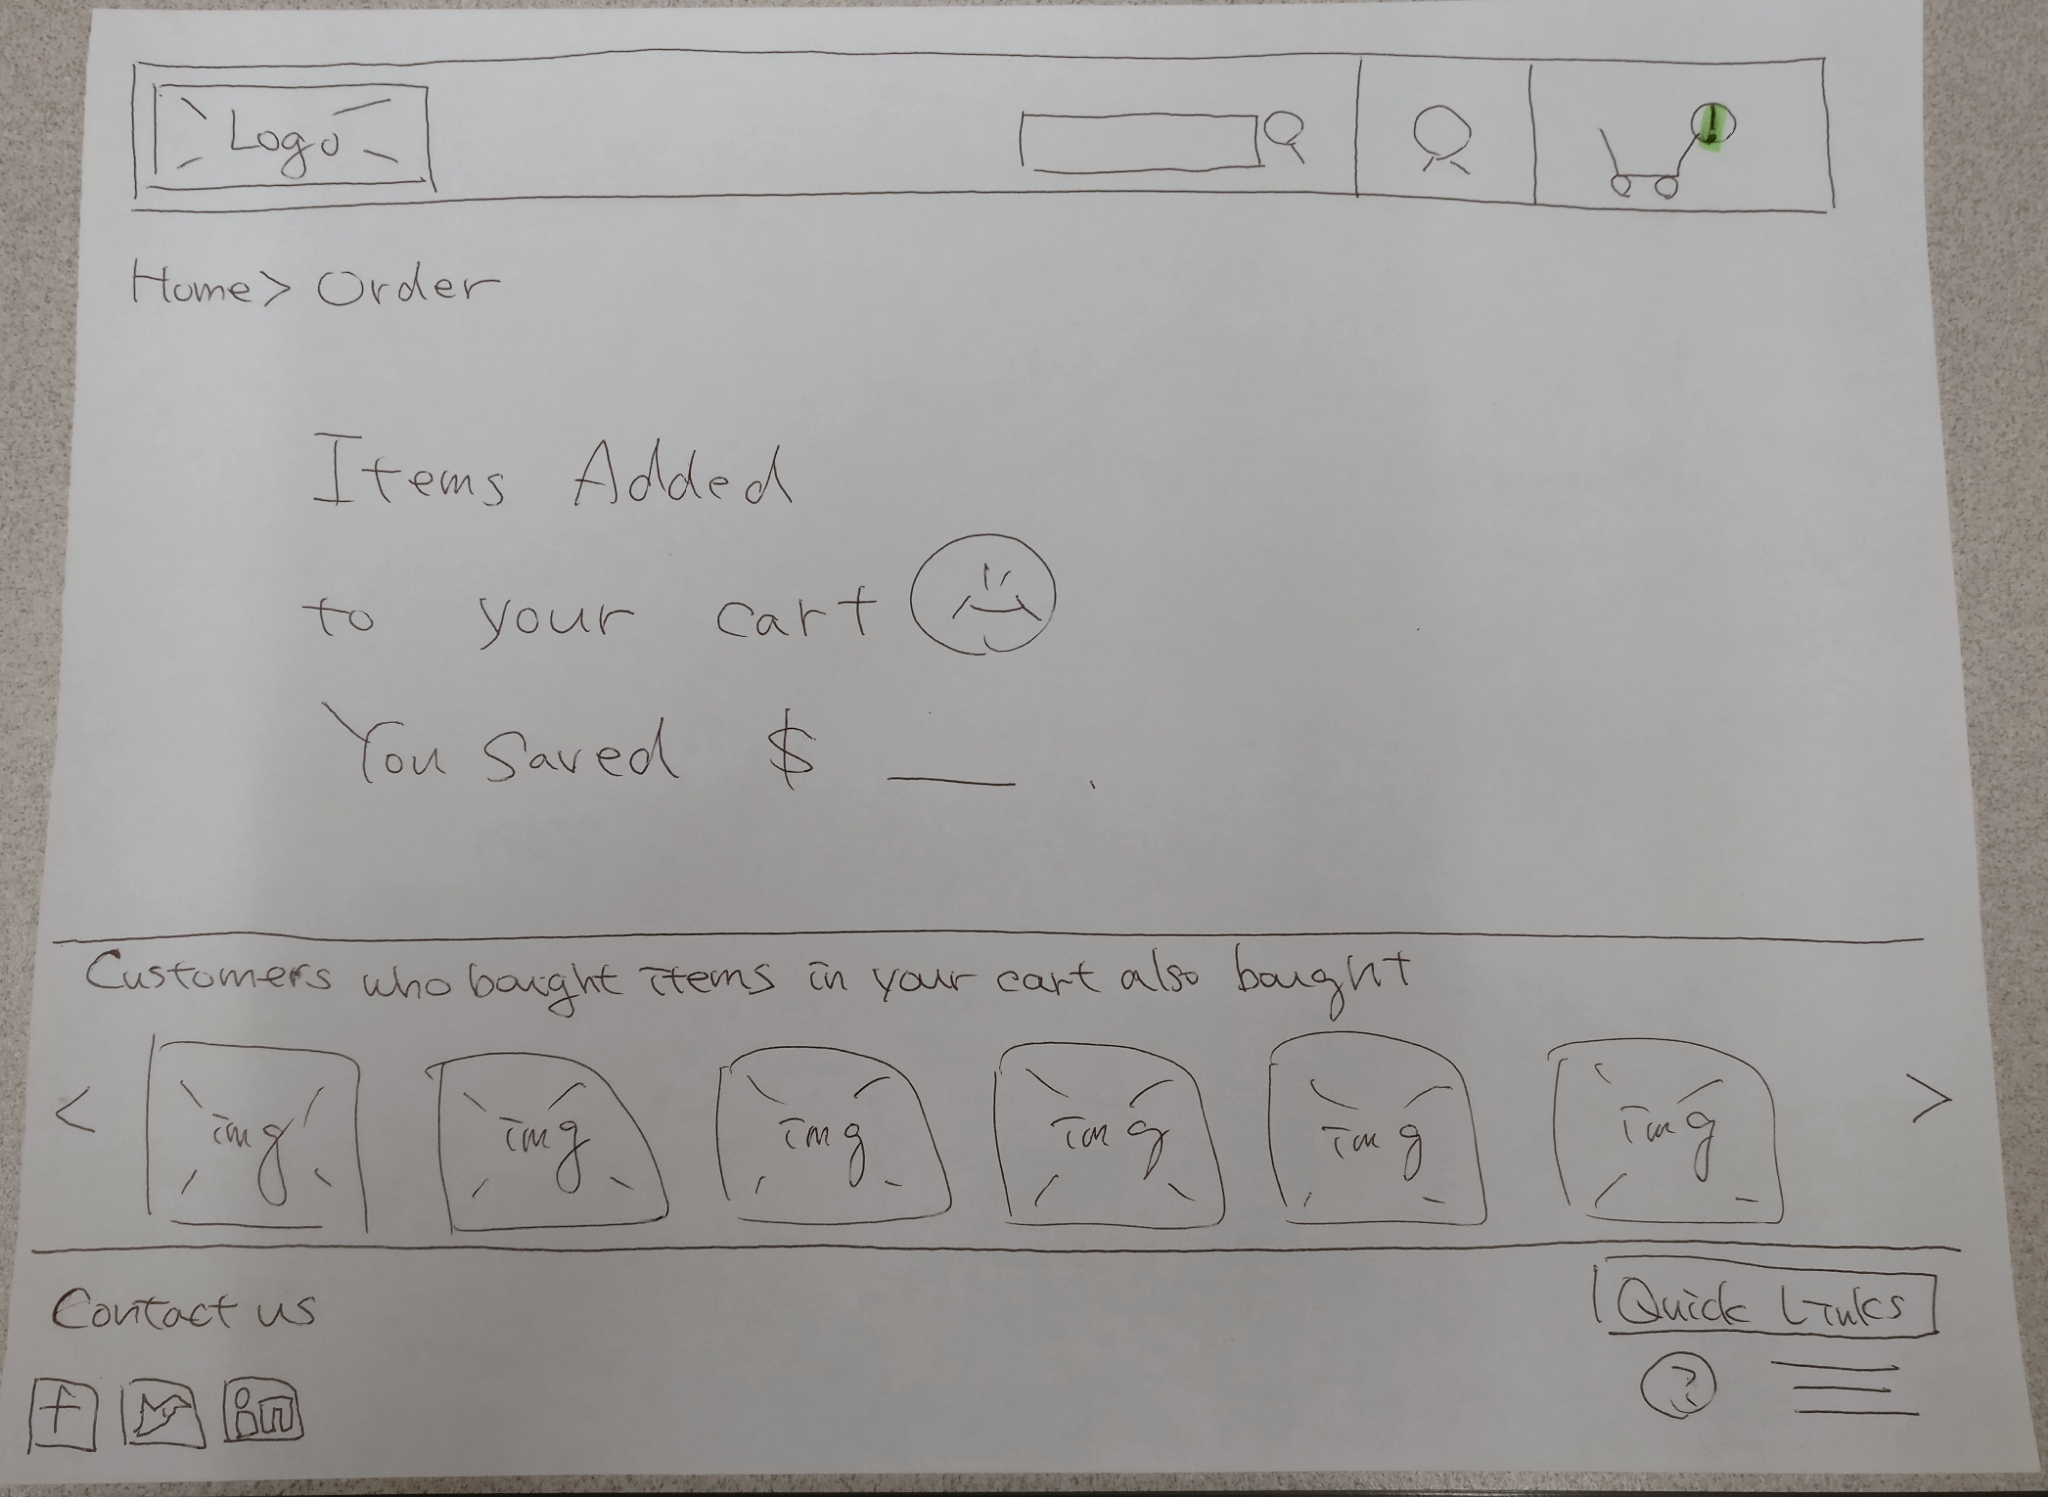 Logo
!
Home > Order
Items Added
to your cart
You Saved $ ___ .
Customers who bought items in your cart also bought
< img img img img img img >
Contact us
Quick Links
f in
?